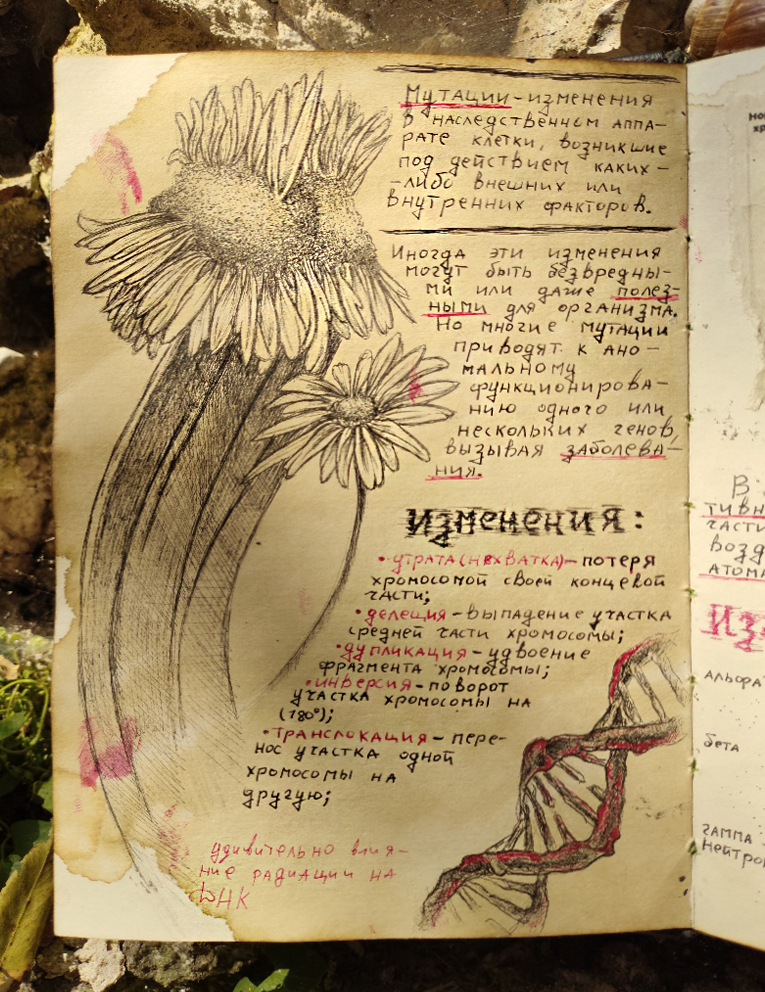 Мутации - изменения
в наследственном аппа-
рате клетки, возникшие
под действием каких-
-либо внешних или
внутренних факторов.
Иногда эти изменения
могут быть безвредны-
ми или даже полез-
ными для организма.
Но многие мутации
приводят к ано-
мальному
функционирова-
нию одного или
нескольких генов,
вызывая заболева-
ния.
Изменения:
• утрата (нехватка) - потеря
хромосомой своей концевой
части;
• делеция - выпадение участка
средней части хромосомы;
• дупликация - удвоение
фрагмента хромосомы;
• инверсия - поворот
участка хромосомы на
(180°);
• транслокация - пере-
нос участка одной
хромосомы на
другую;
удивительно влия-
ние радиации на
ДНК
В
тивн
части
возд
атома
Из
альфа
бета
гамма
нейтро